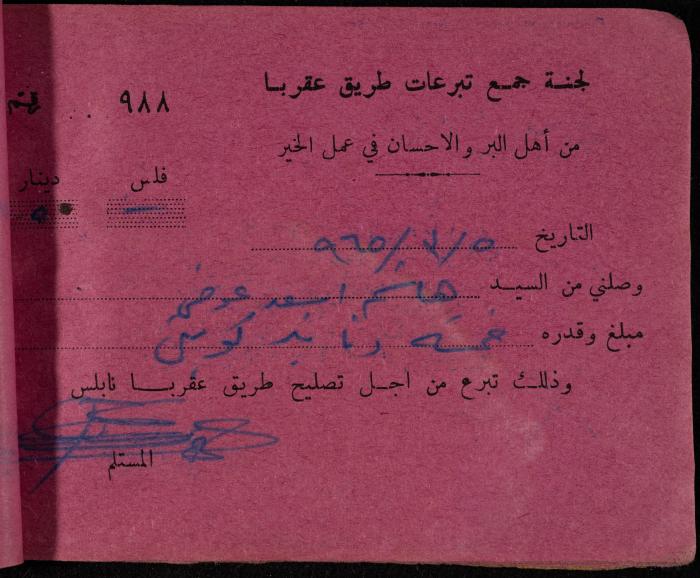 لجنة جمع تبرعات طريق عقربا
٩٨٨
من أهل البر والاحسان في عمل الخير
فلس دينار
— ٥
التاريخ ٥/٧/٩٦٥
وصلني من السيد هاشم اسعد عوض
مبلغ وقدره خمسة دنانير
وذلك تبرع من اجل تصليح طريق عقربا نابلس
المستلم